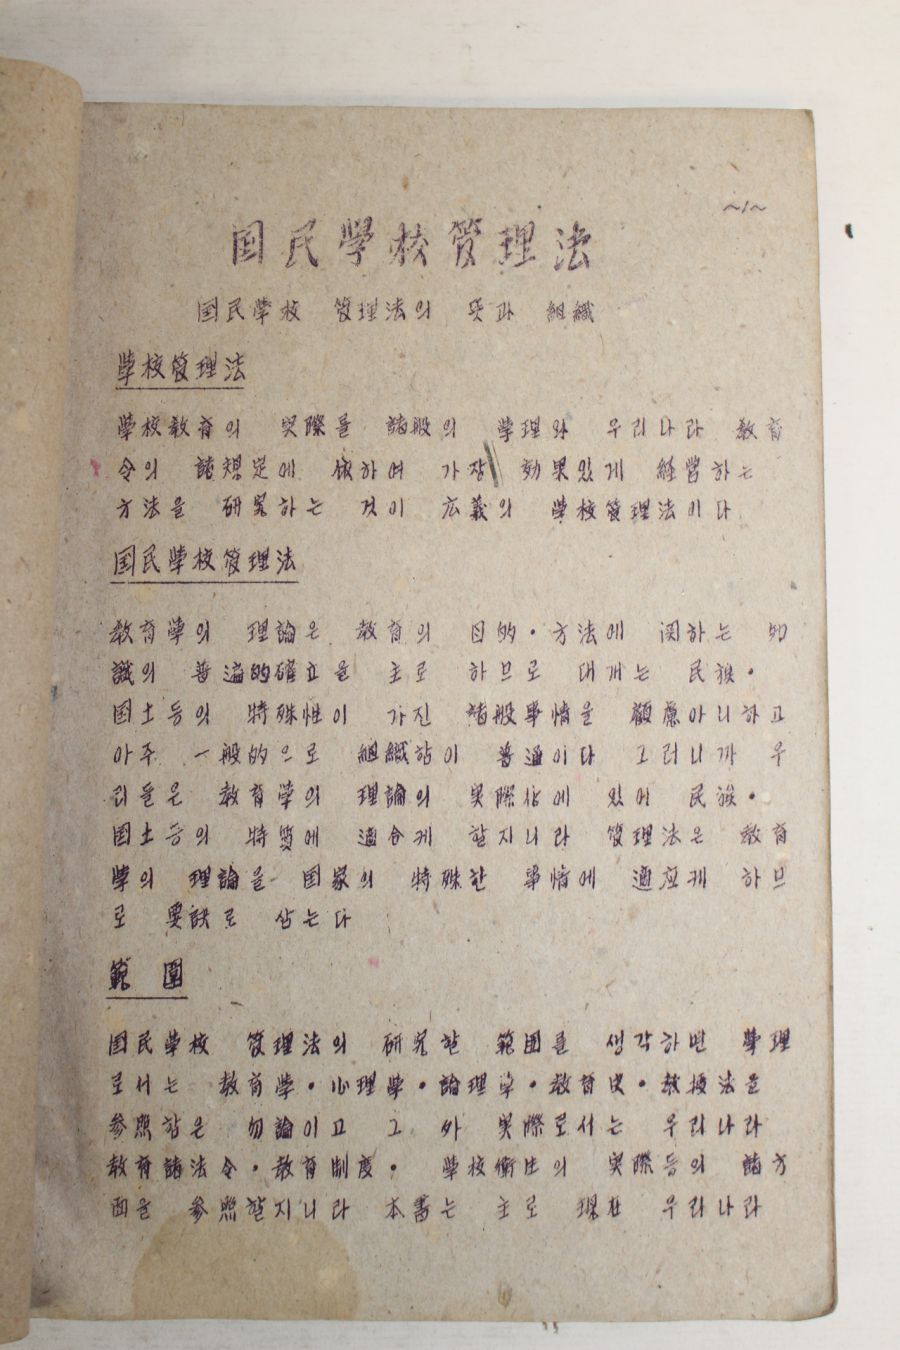 ~1~
国民學校管理法
国民學校 管理法의 뜻과 組織
學校管理法
學校敎育의 実際를 諸般의 學理와 우리나라 敎育
令의 諸規定에 依하여 가장 効果있게 経営하는
方法을 研究하는 것이 広義의 學校管理法이다
国民學校管理法
敎育學의 理論은 敎育의 目的·方法에 関하는 知
識의 普遍的確立을 主로 하므로 대개는 民族·
国土등의 特殊性이 가진 諸般事情을 顧慮아니하고
아주 一般的으로 組織함이 普通이다 그러니까 우
리들은 敎育學의 理論의 実際상에 있어 民族·
国土등의 特質에 適合케 할지니라 管理法은 敎育
學의 理論을 国家의 特殊한 事情에 適应케 하므
로 要訣로 삼는다
範 圍
国民學校 管理法의 研究할 範囲를 생각하면 學理
로서는 敎育學·心理學·論理学·敎育史·敎授法을
參照함은 勿論이고 그 外 実際로서는 우리나라
敎育諸法令·敎育制度· 學校衛生의 実際등의 諸方
面을 參照할지니라 本書는 主로 現在 우리나라